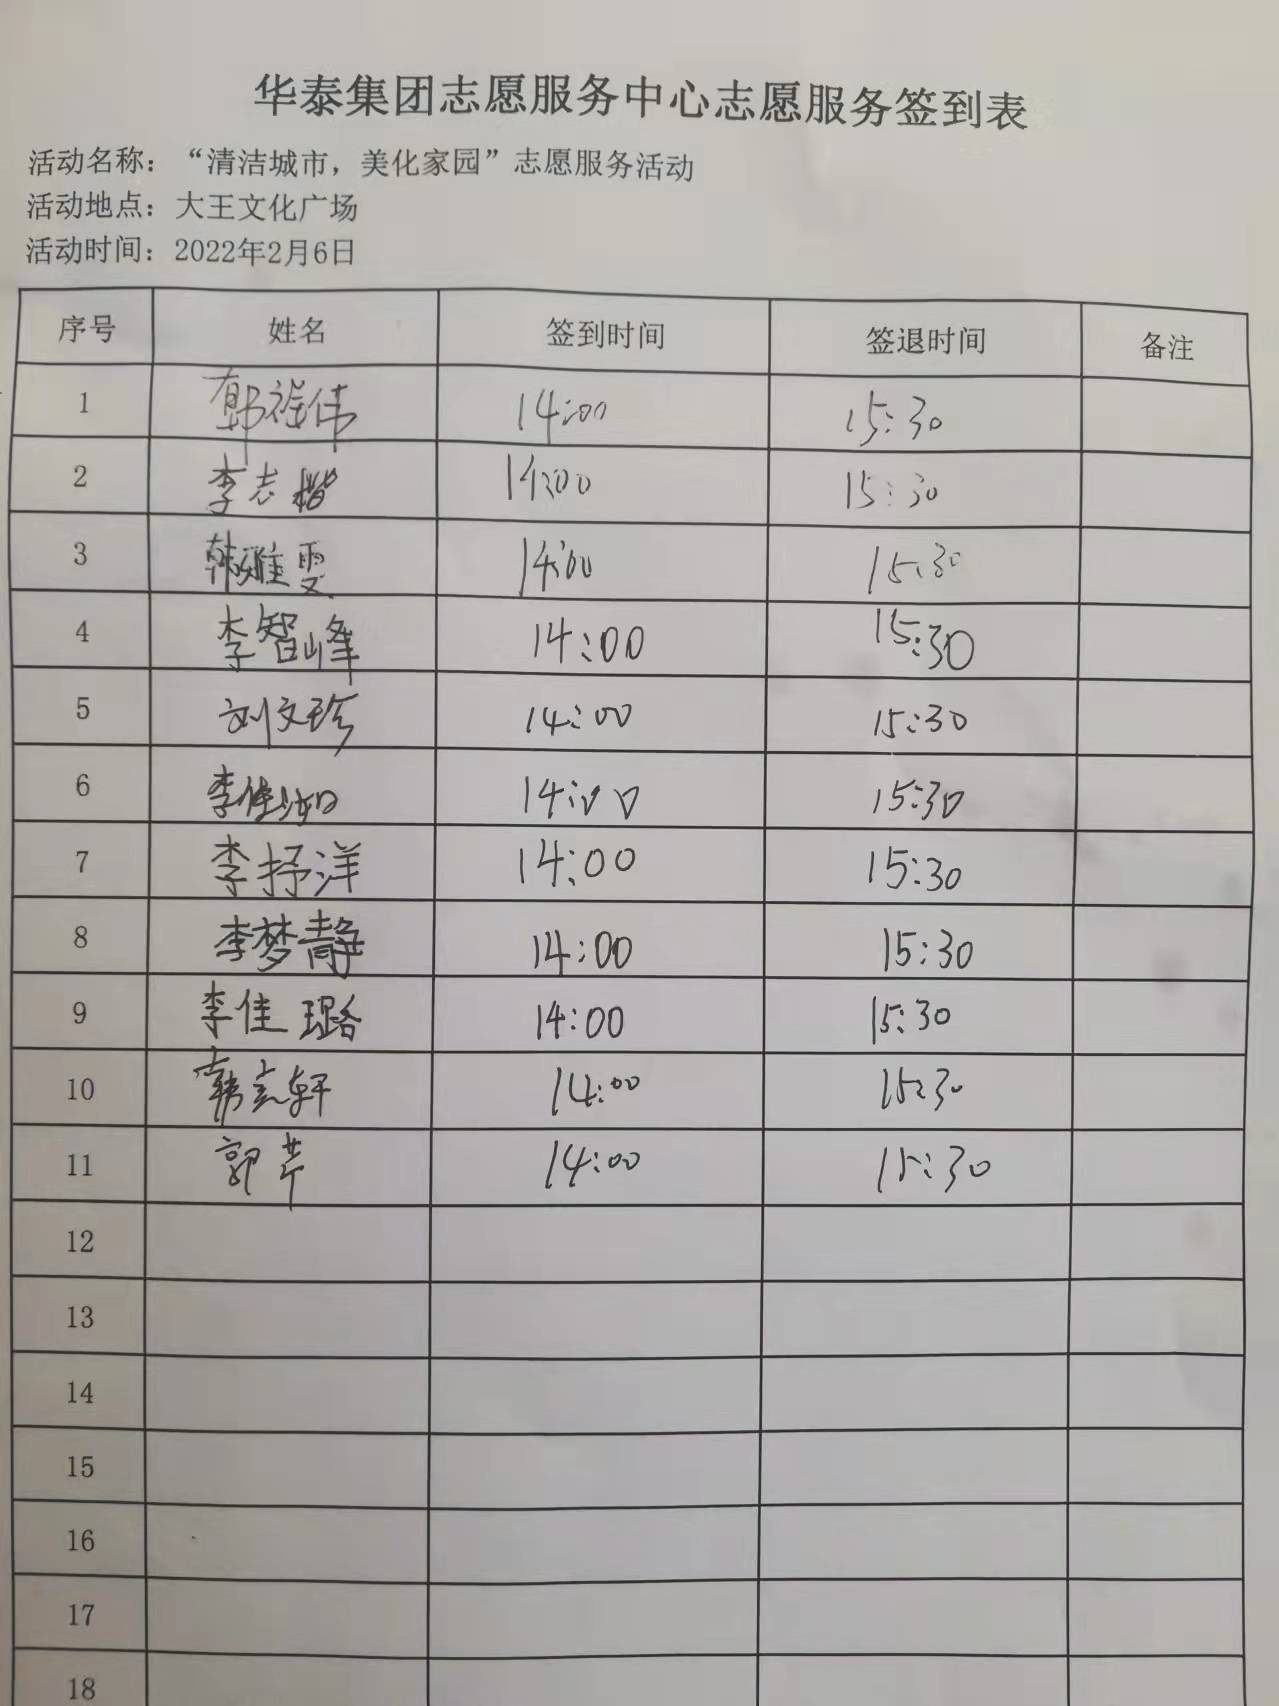 华泰集团志愿服务中心志愿服务签到表
活动名称：“清洁城市，美化家园”志愿服务活动
活动地点：大王文化广场
活动时间：2022年2月6日
序号 姓名 签到时间 签退时间 备注
1 14:00 15:30
2 李志楷 14:00 15:30
3 韩雅雯 14:00 15:30
4 李智峰 14:00 15:30
5 刘文珍 14:00 15:30
6 14:00 15:30
7 李抒洋 14:00 15:30
8 李梦静 14:00 15:30
9 李佳璐 14:00 15:30
10 14:00 15:30
11 郭芹 14:00 15:30
12
13
14
15
16
17
18